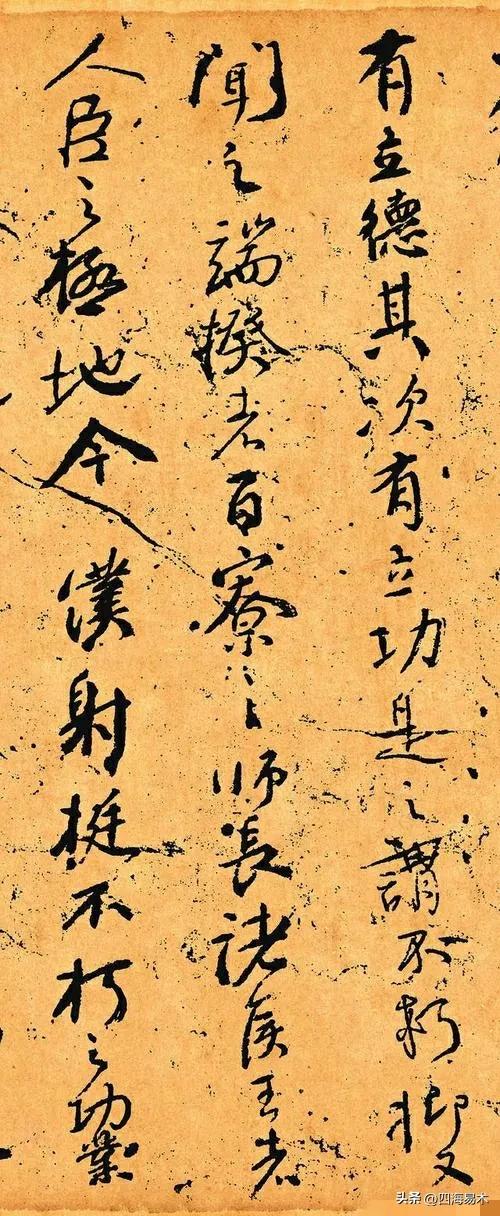 有立德其次有立功是之謂不朽抑又
聞之端揆者百寮之師長諸侯王者
人臣之極地今僕射挺不朽之功業
头条 @四海易木